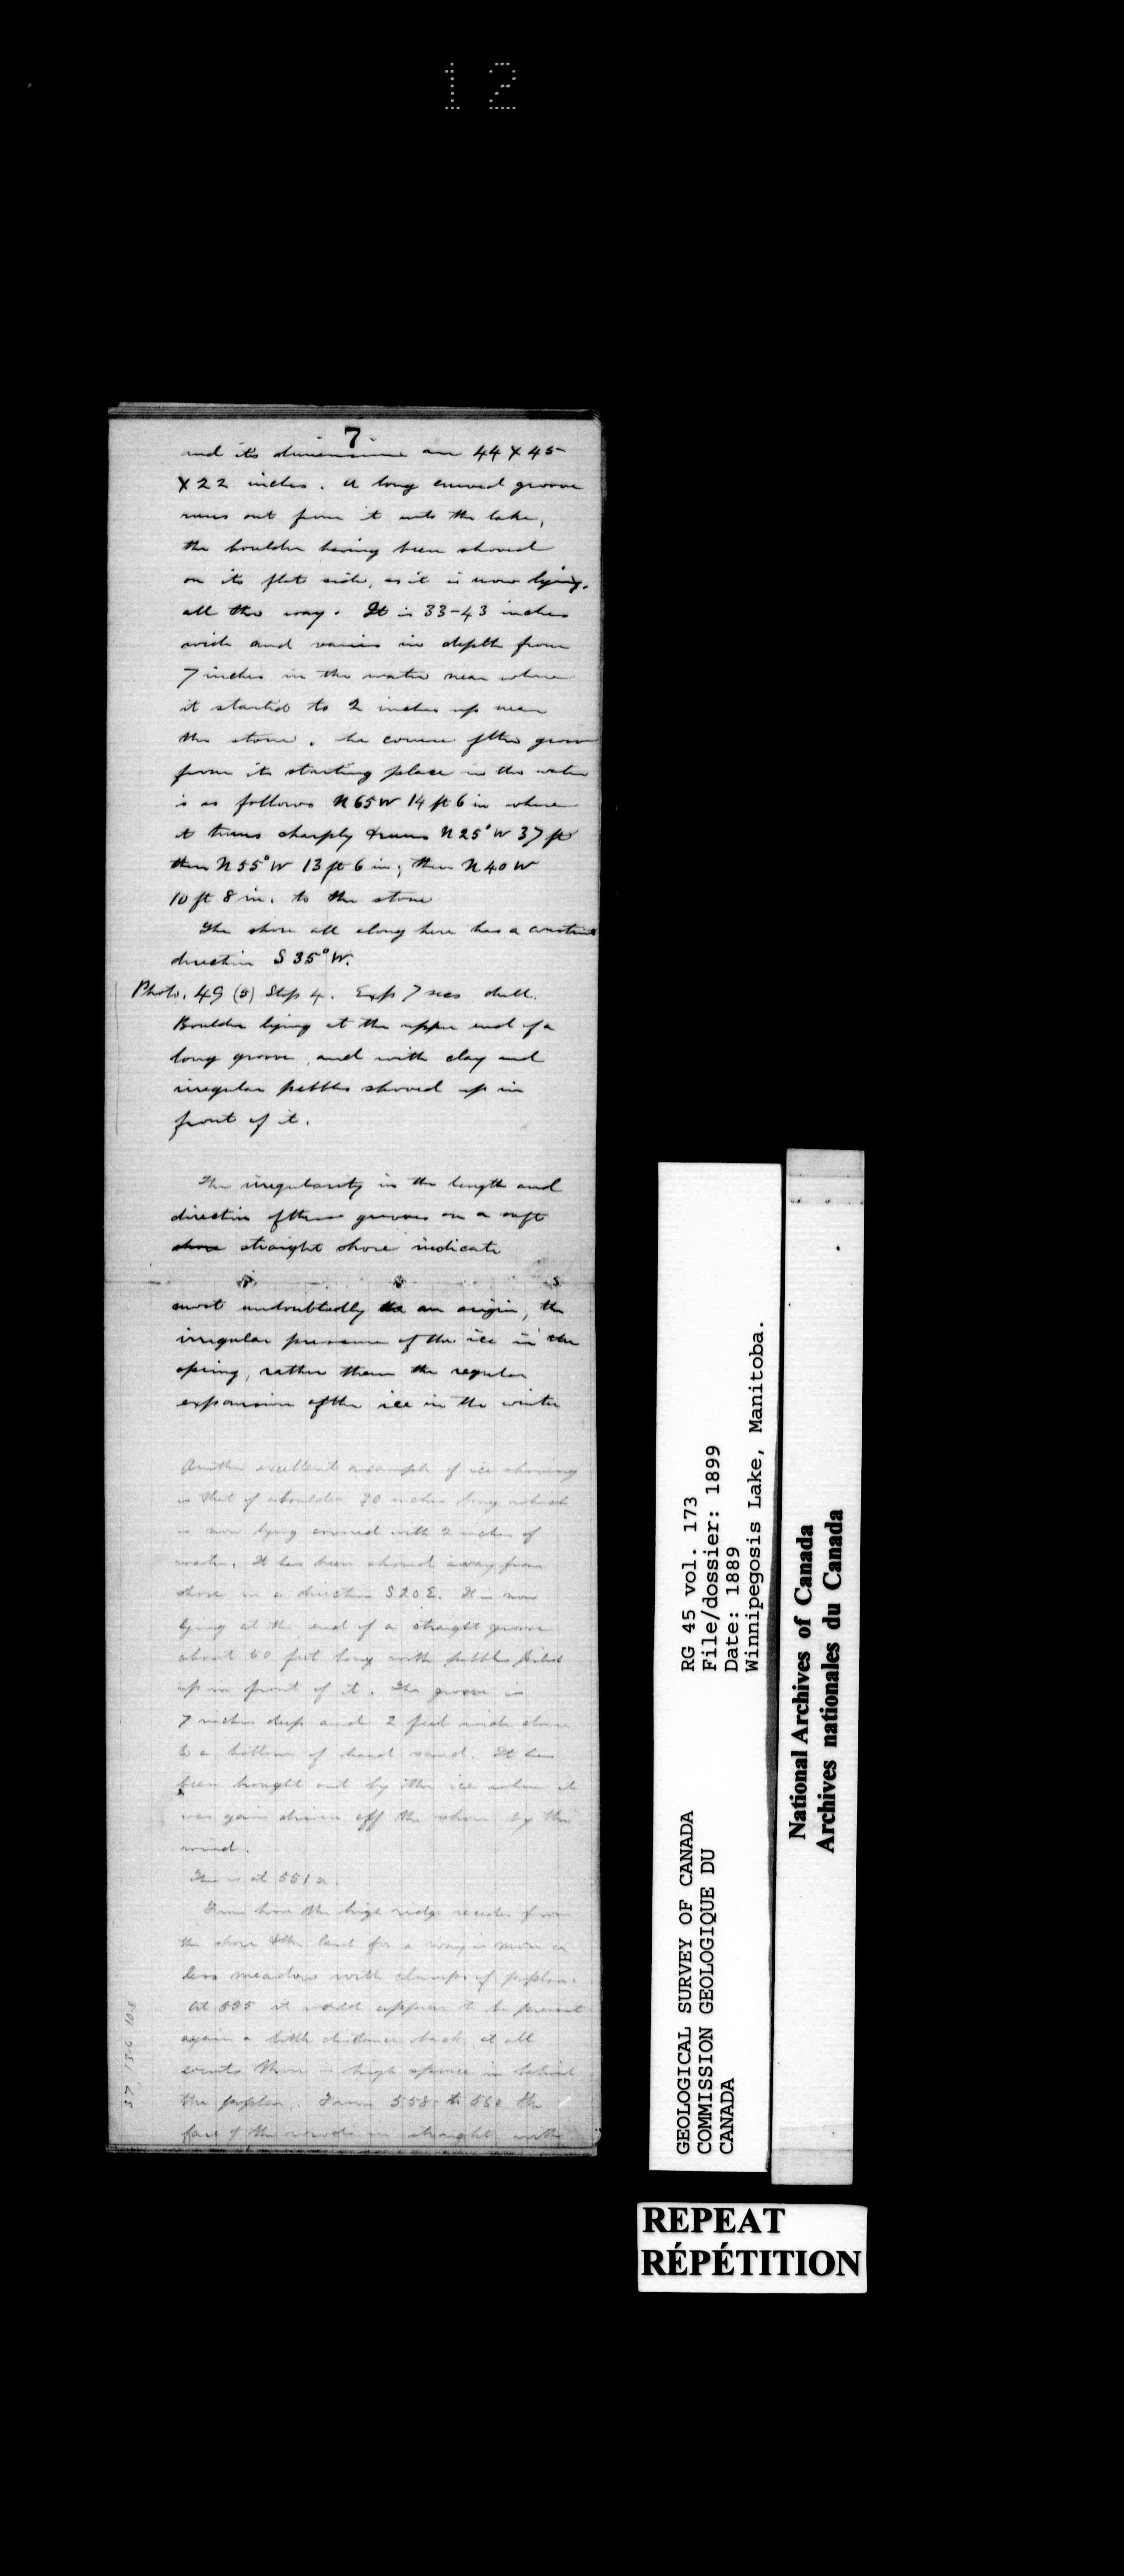 12
7
and its dimensions are 44 X 45
X 22 inches. A long curved groove
runs out from it into the lake,
the boulder having been shoved
on its flat side, as it is now lying.
all the way. It is 33-43 inches
wide and varies in depth from
7 inches in the water near where
it started to 2 inches up near
the stone. he course of the groove
from its starting place in the water
is as follows N65W 14 ft 6 in where
it turns sharply & runs N25°W 37 ft
then N55°W 13 ft 6 in; then N40W
10 ft 8 in. to the stone
The shore all along here has a constant
direction S 35° W.
Photo. 49 (5) Stop 4. Exp 7 secs dull.
Boulder lying at the upper end of a
long groove, and with clay and
irregular pebbles shoved up in
front of it.
The irregularity in the length and
direction of these grooves on a soft
shore straight shore indicate
most undoubtedly as an origin, the
irregular pressure of the ice in the
spring, rather than the regular
expansion of the ice in the winter
Another excellent example of ice shoving
is that of a boulder 30 inches long which
is now lying covered with 2 inches of
water. It has been shoved away from
shore in a direction S20E. It is now
lying at the end of a straight groove
about 50 feet long with pebbles piled
up in front of it. The groove is
7 inches deep and 2 feet wide down
to a bottom of hard sand. It has
been brought out by the ice when it
was again driven off the shore by the
wind.
This is at 551 a.
From here the high ridge recedes from
the shore & the land for a way is more or
less meadow with clumps of poplar.
At 555 it would appear to be present
again a little distance back, at all
events there is high spruce in behind
the poplar. From 558 to 560 the
face of the woods is straight with
37 13.6 10.8
GEOLOGICAL SURVEY OF CANADA
COMMISSION GEOLOGIQUE DU
CANADA
RG 45 vol. 173
File/dossier: 1899
Date: 1889
Winnipegosis Lake, Manitoba.
National Archives of Canada
Archives nationales du Canada
REPEAT
RÉPÉTITION